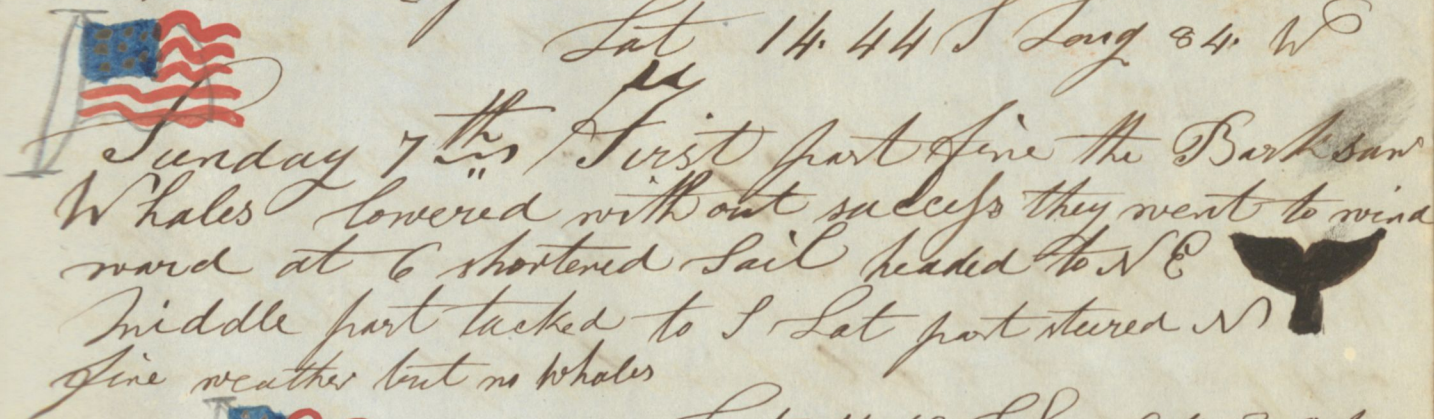 Lat 14.44 S Long 84. W
Sunday 7th First part fine the Bark saw
Whales lowered without success they went to wind
ward at 6 shortened Sail headed to NE
Middle part tacked to S Lat part steured N
fine weather but no Whales